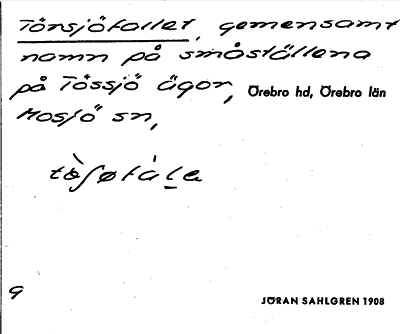 Törsjöfallet, gemensamt
namn på småställena
på Tössjö ägor, Örebro hd, Örebro län
Mosjö sn,
9
JÖRAN SAHLGREN 1908